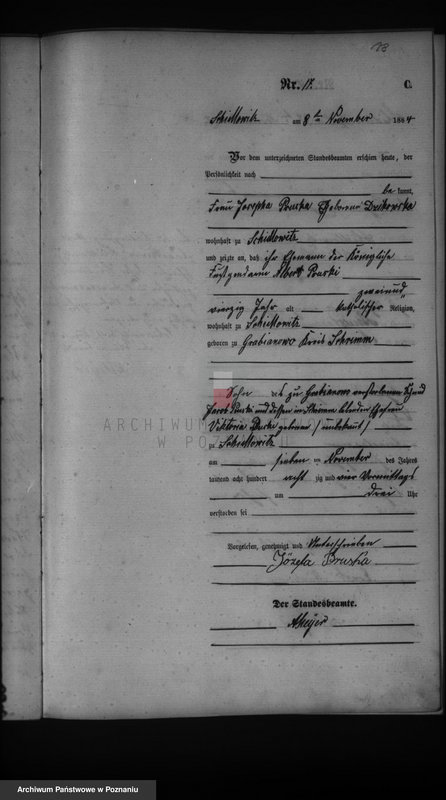 13
Nr. 17. C.
Schildowitz am 8ten November 1884
Vor dem unterzeichneten Standesbeamten erschien heute, der
Persönlichkeit nach
be kannt,
Frau Josepha Pruska Geborene
wohnhaft zu Schildowitz
und zeigte an, daß ihr Ehemann der Königliche
Albert Pruski
zweiund
vierzig Jahr alt katholischer Religion,
wohnhaft zu Schildowitz
geboren zu Grabianowo Kreis Schrimm
Sohn des zu Grabianowo verstorbenen
Jacob und dessen in
Viktoria geborene / unbekannt /
zu Schildowitz
am sieben ten November des Jahres
tausend acht hundert acht zig und vier Vormittags
um drei Uhr
verstorben sei
Vorgelesen, genehmigt und Unterschrieben
Józefa Pruska
Der Standesbeamte.
ARCHIWUM
W POZNANIU
Archiwum Państwowe w Poznaniu